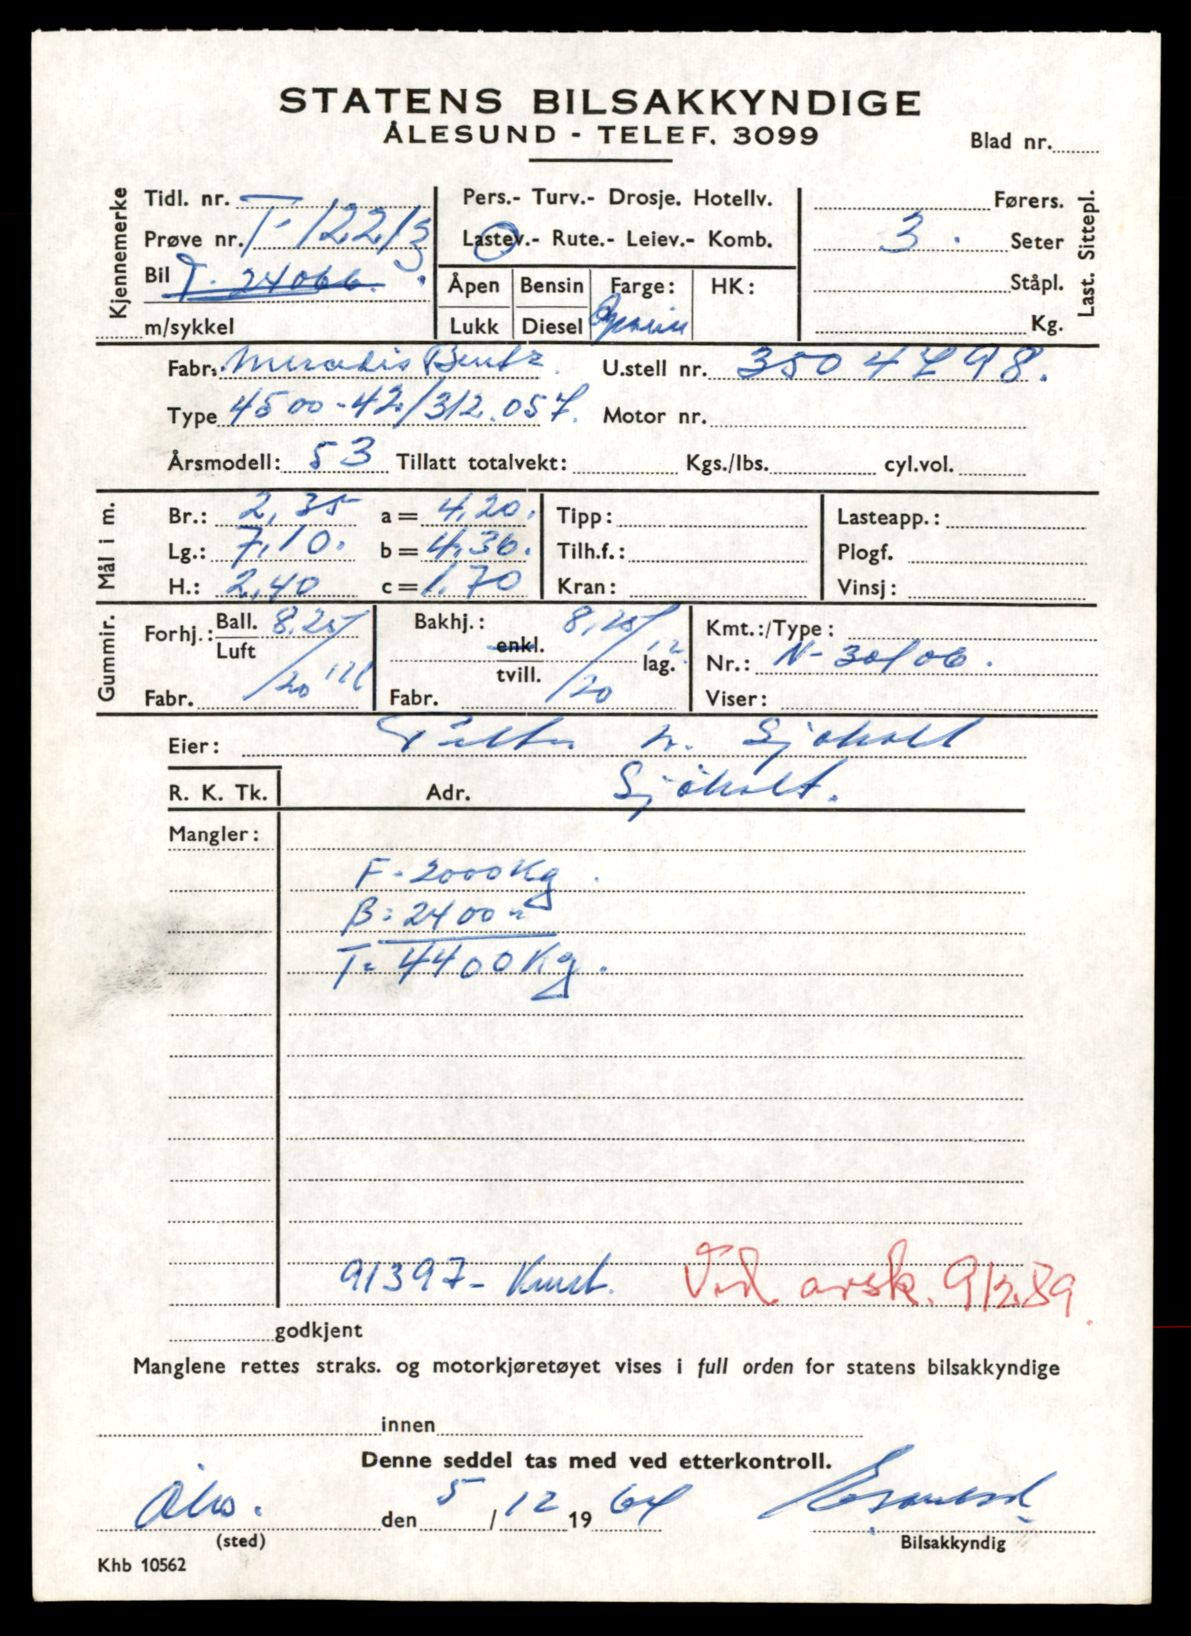 STATENS BILSAKKYNDIGE
ÅLESUND - TELEF. 3099
Blad nr.
Kjennemerke
Tidl. nr. T-12213
Prøve nr.
Bil T-24066.
m/sykkel
Pers.- Turv.- Drosje. Hotellv.
Lastev.- Rute.- Leiev.- Komb.
Åpen Bensin Farge: HK:
Lukk Diesel
Førers.
3. Seter
Ståpl.
Kg.
Last. Sittepl.
Fabr. Mercedes Bentz U.stell nr. 3504798.
Type 4500-42/312.057. Motor nr.
Årsmodell: 53 Tillatt totalvekt: Kgs./lbs. cyl.vol.
Mål i m.
Br.: 2,35 a = 4,20. Tipp: Lasteapp.:
Lg.: 7,10. b = 4,36. Tilh.f.: Plogf.
H.: 2,40 c = 1,70 Kran: Vinsj:
Gummir.
Forhj.: Ball. 8,25/20
Luft
Fabr.
Bakhj.: 8,25/20 12
enkl. lag.
tvill.
Fabr.
Kmt.:/Type:
Nr.: N-30106.
Viser:
Eier: Petter N. Sjøholt
R. K. Tk. Adr. Sjøholt.
Mangler:
F- 2000 Kg
B: 2400 "
T= 4400 Kg.
91397- Knut. Ved avsk. 9/2.59.
godkjent
Manglene rettes straks. og motorkjøretøyet vises i full orden for statens bilsakkyndige
innen
Denne seddel tas med ved etterkontroll.
Åles. den 5/12 1964
(sted) Bilsakkyndig
Khb 10562